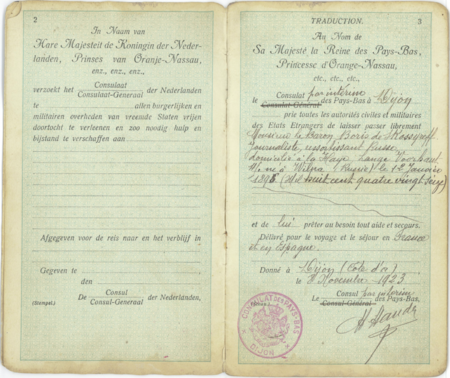 2
In Naam van
Hare Majesteit de Koningin der Neder-
landen, Prinses van Oranje-Nassau,
enz., enz., enz.,
Consulaat
verzoekt het Consulaat-Generaal der Nederlanden
te allen burgerlijken en
militairen overheden van vreemde Staten vrijen
doortocht te verleenen en zoo noodig hulp en
bijstand te verschaffen aan
Afgegeven voor de reis naar en het verblijf in
Gegeven te
den
Consul
De Consul-Generaal der Nederlanden,
(Stempel.)
TRADUCTION. 3
Au Nom de
Sa Majesté la Reine des Pays-Bas,
Princesse d'Orange-Nassau,
etc., etc., etc.,
Consulat par intérim
Le Consulat-Général des Pays-Bas à Dijon
prie toutes les autorités civiles et militaires
des Etats Etrangers de laisser passer librement
Monsieur le Baron Boris de
journaliste, ressortissant russe,
domicilié à la Haye, Lange Voorhout
né à Wilna (Russie) le 1er Janvier
1896 (Mil huit cent quatre vingt seize)
et de lui prêter au besoin tout aide et secours.
Délivré pour le voyage et le séjour en France
et en Espagne.
Donné à Dijon (Côte d'or)
le 8 Novembre 1923
Consul par intérim
Le Consul-Général des Pays-Bas,
CONSULAT DES PAYS-BAS
DIJON